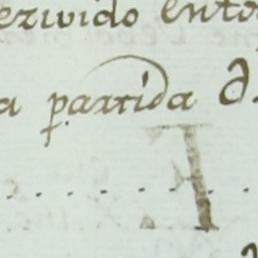 erivido ento
a partida d